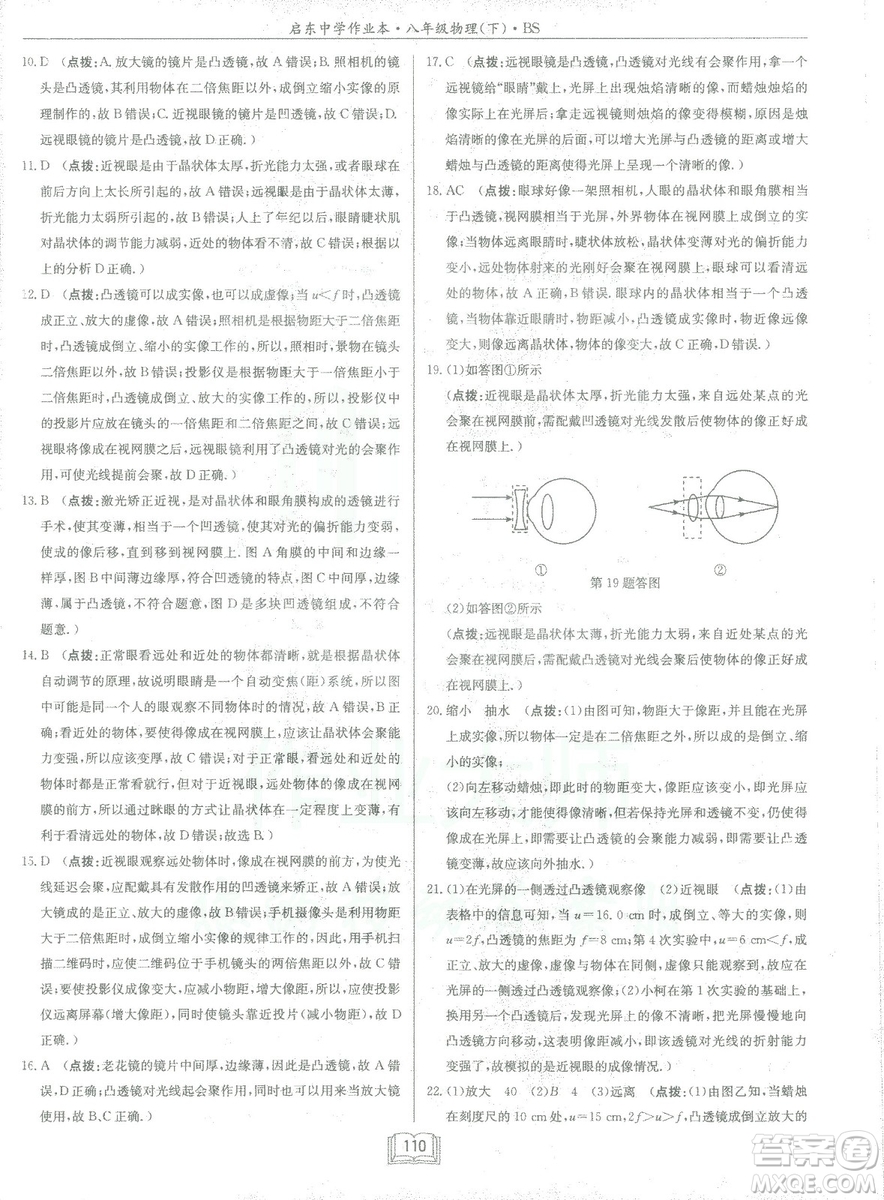 启东中学作业本·八年级物理(下)·BS
10. D (点拨:A. 放大镜的镜片是凸透镜,故 A 错误;B. 照相机的镜
头是凸透镜,其利用物体在二倍焦距以外,成倒立缩小实像的原
理制作的,故 B 错误;C. 近视眼镜的镜片是凹透镜,故 C 错误;D.
远视眼镜的镜片是凸透镜,故 D 正确.)
11. D (点拨:近视眼是由于晶状体太厚,折光能力太强,或者眼球在
前后方向上太长所引起的,故 A 错误;远视眼是由于晶状体太薄,
折光能力太弱引起的,故 B 错误;人上了年纪以后,眼睛睫状肌
对晶状体的调节能力减弱,近处的物体看不清,故 C 错误;由以
上的分析 D 正确.)
12. D (点拨:凸透镜可以成实像,也可以成虚像;当 u<f 时,凸透镜
成正立、放大的虚像,故 A 错误;照相机是根据物距大于二倍焦距
时,凸透镜成倒立、缩小的实像工作的,所以照相时,景物在镜头
二倍焦距以外,故 B 错误;投影仪是根据物距大于一倍焦距小于
二倍焦距时,凸透镜成倒立、放大的实像工作的,所以,投影仪中
的投影片应放在镜头的一倍焦距和二倍焦距之间,故 C 错误;近
视眼将像成在视网膜之前,远视眼镜利用了凸透镜的会聚作
用,可使光线提前会聚,故 D 正确.)
13. B (点拨:激光矫正近视,是对晶状体和眼角膜构成的透镜进行
手术,使其变薄,相当于一个凹透镜,使其对光的偏折能力变弱,
使成的像后移,直到移到视网膜上. 图 A 角膜的中间和边缘一
样厚. 图 B 中间薄边缘厚,符合凹透镜的特点,图 C 中间厚,边缘
薄,属于凸透镜,不符合题意. 图 D 是多块凹透镜组成,不符合
题意.)
14. B (点拨:正常眼看远处和近处的物体都清晰,就是根据晶状体
自动调节的原理,故说明眼睛是一个自动变焦(距)系统,所以
图中可以表示人的眼观察不同物体时的情况,故 A 错误;人眼在
看近处的物体时,应该让晶状体的凸度变大,对光的会聚作用
变强,故 B 正确;看近处时,应该让晶状体的凸度变大,对光的会
聚作用变强,故 C 错误;正常眼在看远处和近处的
物体时都可以调节晶状体的凸度,来改变焦距,使像成在视网
膜的前方,可以通过眯眼的方式让晶状体在一定程度上变薄,有
利于看清远处的物体,故 D 错误;故选 B.)
15. D (点拨:近视眼观察远处物体时,像成在视网膜的前方,为使光
线延迟会聚,应戴具有发散作用的凹透镜来矫正,故 A 错误;放
大镜成的是正立、放大的虚像,故 B 错误;手机摄像头是利用物距
大于二倍焦距时,成倒立缩小实像的规律工作的,使用手机扫
描二维码时,应使二维码位于手机镜头的两倍焦距以外,故 C 错
误;要使投影仪成像变大,应减小物距,增大像距,所以应使投影
仪远离屏幕(增大像距),同时使镜头靠近投影片(减小物距),故 D
正确.)
16. A (点拨:老花镜的镜片中间厚,边缘薄,因此是凸透镜,故 A 错
误,D 正确;凸透镜对光线起会聚作用,并且可以当做放大镜
使用,故 B、C 正确.)
17. C (点拨:近视眼镜是凹透镜,远视眼镜是凸透镜,凸透镜对光线有会聚作用,若取一
远视眼镜给“眼睛”戴上,光屏上出现的烛焰的像变得模糊,而蜡烛烛焰的
像实际上在光屏的前方;拿走远视眼镜,光屏上的烛焰的像变得模糊,说明烛
焰的像成在光屏的后面,可以增大蜡烛与凸透镜的距离或增大
蜡烛与光屏的距离得到一个清晰的像.)
18. AC (点拨:眼球好像一架照相机,人眼的晶状体和眼角膜相当于
凸透镜,视网膜相当于光屏,外界物体在视网膜上成倒立的实
像;当物体远离眼睛时,睫状体放松,晶状体变薄对光的偏折能力变弱,
远处物体射来的光刚好会聚在视网膜上,眼球可以看清远处的物
体,当物体靠近眼睛时,物距减小,凸透镜成实像时,物近像远像
变大,像远离晶状体,物体的像变大;故 A、C 正确,B、D 错误.)
19. (1)如答图①所示
(点拨:近视眼是晶状体太厚,折光能力太强,来自远处某点的光
会聚在视网膜前,需配戴凹透镜对光线发散后使物体的像正好成
在视网膜上.)
① ②
第 19 题答图
(2)如答图②所示
(点拨:远视眼是晶状体太薄,折光能力太弱,来自近处某点的光
会聚在视网膜后,需配戴凸透镜对光线会聚后使物体的像正好成在
视网膜上.)
20. 缩小 抽水 (点拨:(1)由图可知,物距大于像距,并在光屏
上成实像,所以物体一定是在二倍焦距之外,所以成的是倒立、缩
小的实像;
(2)向左移动蜡烛,此时的物距变大,像距应该变小,即光屏应该
向左移动,才能使所成像清晰,但若保持光屏和透镜不变,仍要使
像成在光屏上,则需要使凸透镜的会聚能力减弱,即需要让凸透
镜变薄,故应该向外抽水.)
21. (1)在光屏的一侧透过凸透镜观察像 (2)近视眼 (点拨:(1)由
表格中的信息可知,当 u=16.0 cm 时,成倒立、等大的实像,所
以 u=2f,凸透镜的焦距为 f=8 cm;第 4 次实验中,u=6 cm<f,成
正立放大的虚像,虚像与物体在同侧,虚像不能成在光屏上,所以
需要在光屏的一侧透过凸透镜观察像;(2)小柯在第 1 次实验的基础上,将
近视眼镜放在凸透镜前,发现光屏上的像不清晰,
将光屏远离透镜又看到清晰的像,说明原来凸透镜的折射能
力太强了,故模拟的是近视眼的成像情况.)
22. (1)放大 40 (2)B 4 (3)远离 (点拨:(1)由图乙知,当蜡烛
在刻度尺的 10 cm 处,u=15 cm,2f>u>f,凸透镜成倒立放大的
110
中学答案圈
MXQE.COM